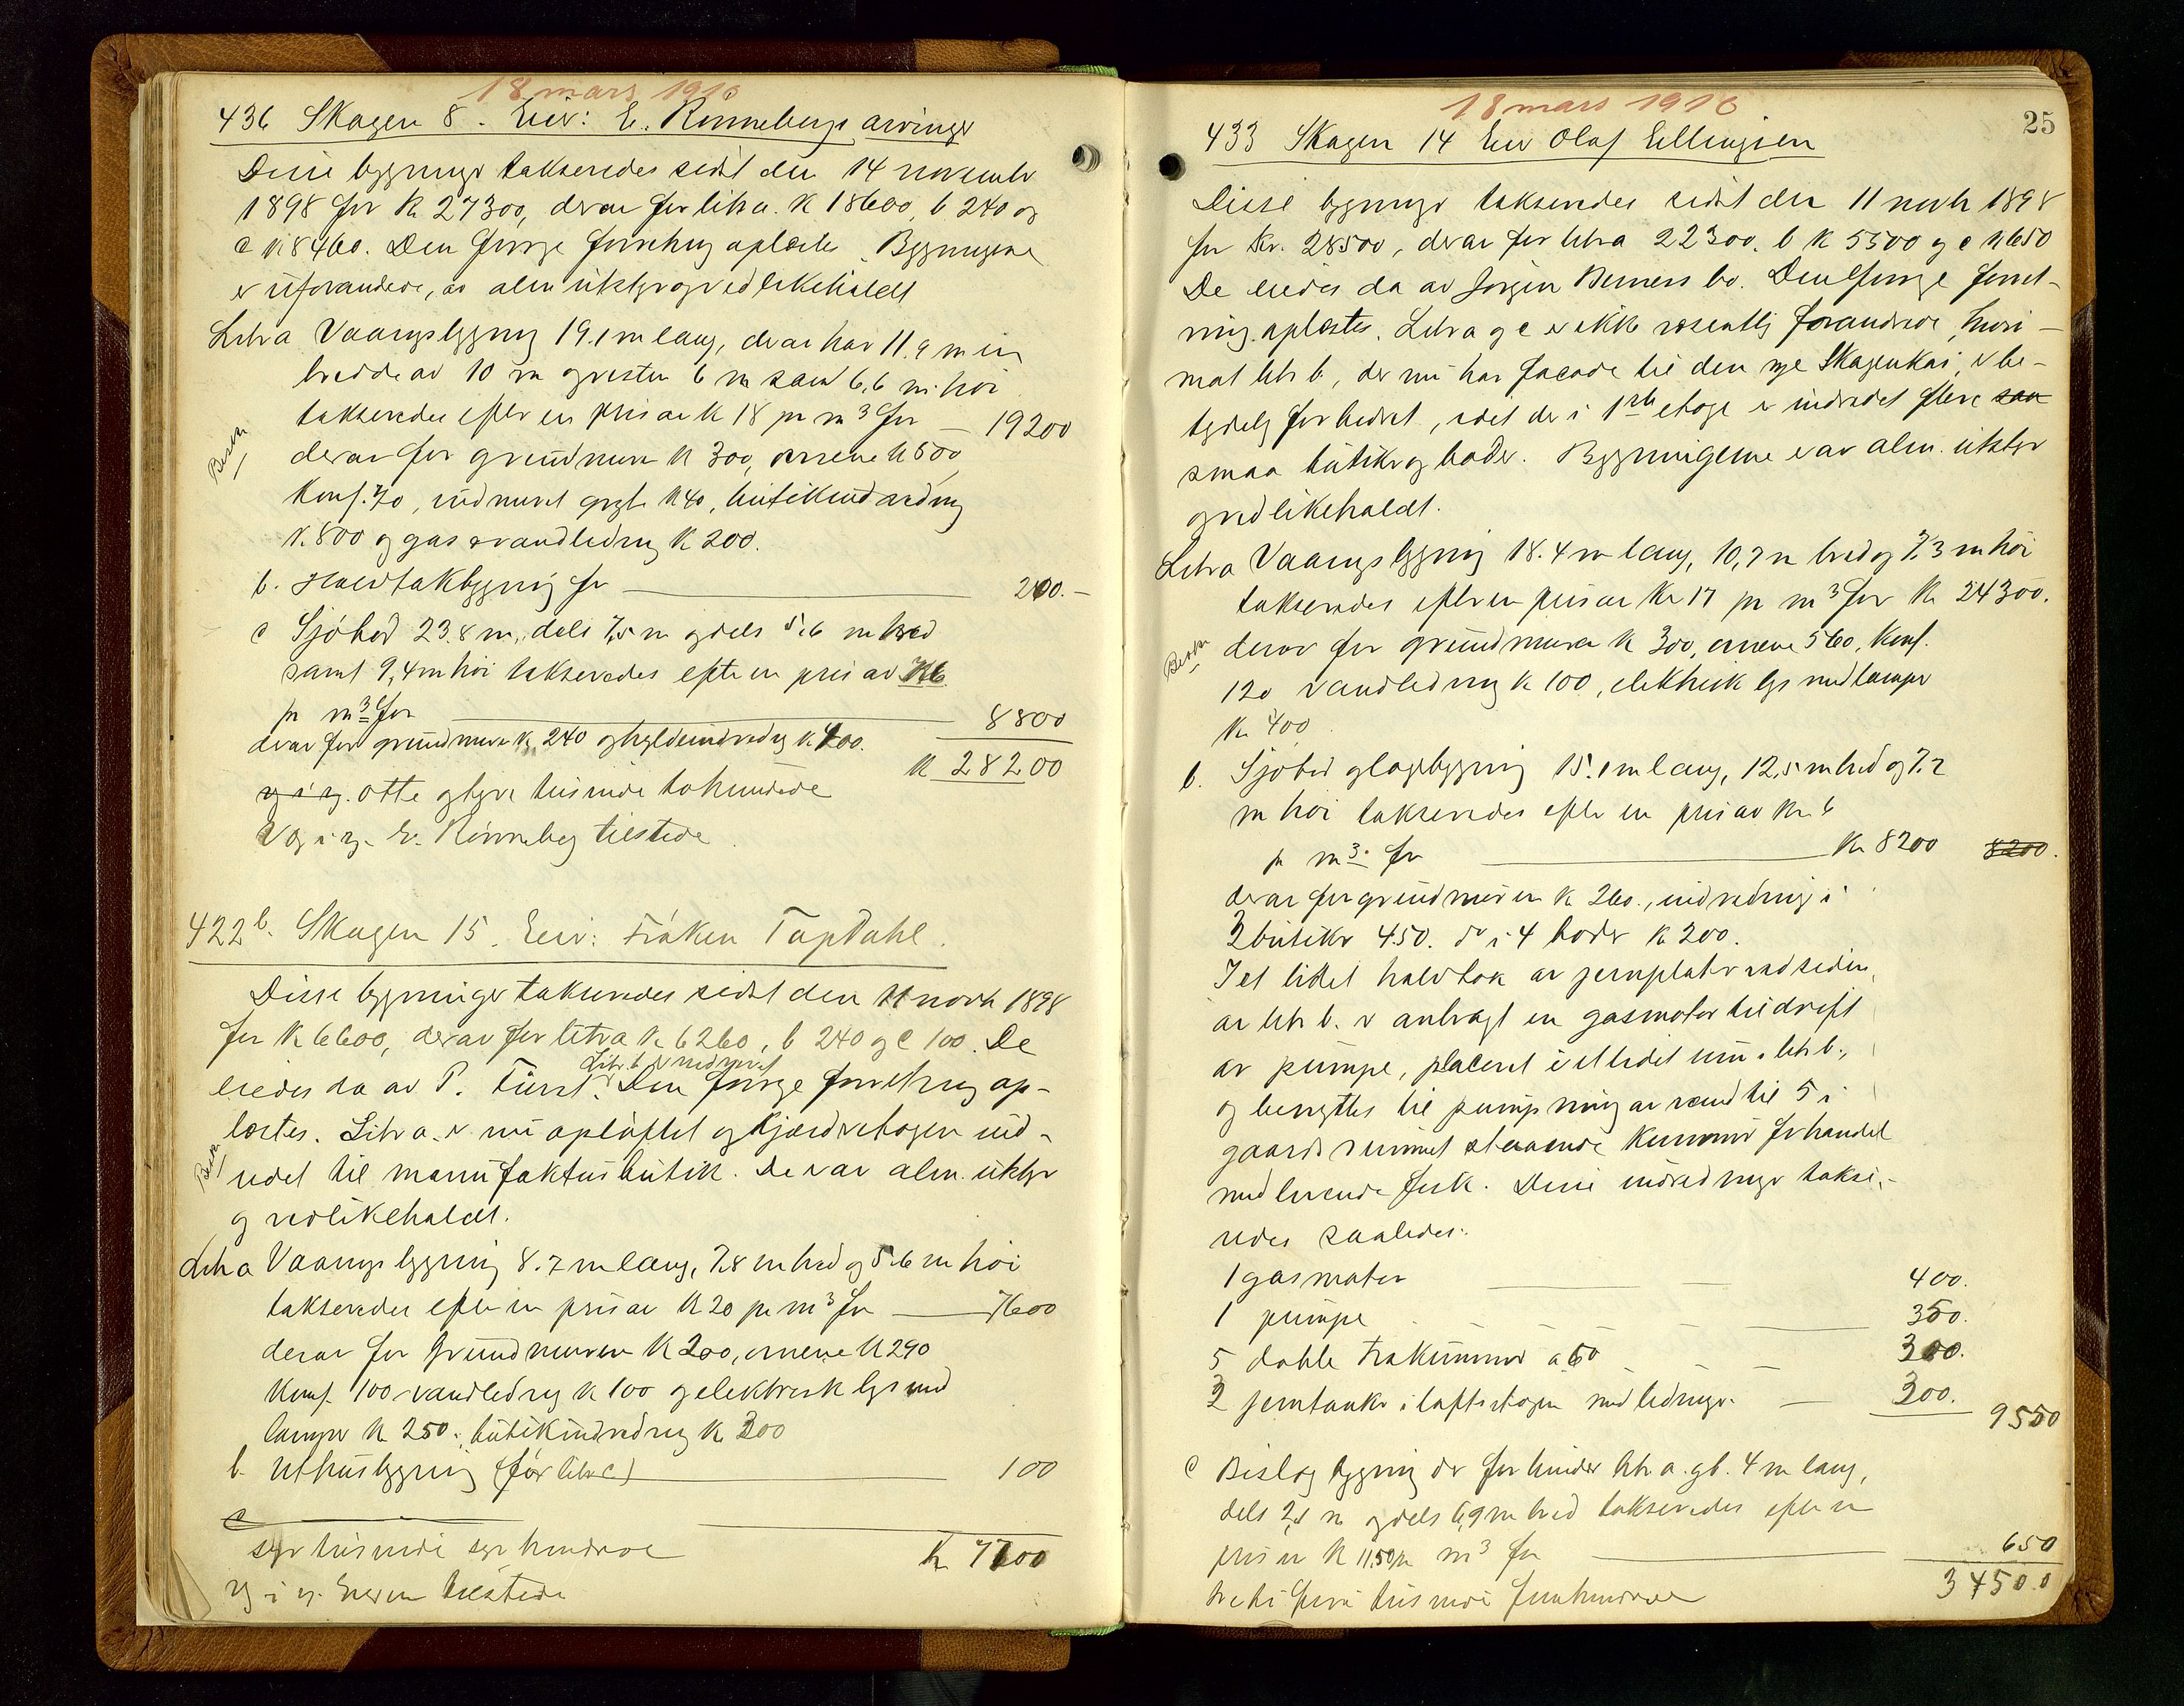 18 mars 1910
436 Skagen 8. Eier: E. Rønnebergs arvinger
Disse bygninger takseredes sidst den 14 novembr
1898 for K 27300, derav for litr a. K 18600, b 240 og
c K 8460. Den forrige forretning oplæstes. Bygningene
er uforandrede, av alm utstyr og vedlikeholdt
Litr a Vaaningsbygning 19.1 m lang, derav har 11.9 m en
bredde av 10 m og resten 6 m samt 6,6 m høi
takseredes efter en pris av K 18 pr m³ for — 19200
derav for grundmuren K 300, ovnene K 500
Komf. 70, indmuret gryte K 40, butikindredning
K. 800 og gas & vandledning K 200.
b. Halvtakbygning for — 200.–
c Sjøbod 23.8 m, dels 7,5 m og dels 5.6 m bred
samt 9,4 m høi takseredes efter en pris av K 6
pr m³ for — 8800
derav for grundmuren K 240 og hyldeindredning K 400.
K 28200
otte og tyve tusinde tohundrede
V og i g. E. Rønneberg tilstede
422 b. Skagen 15. Eier: Frøken Tap Dahl.
Disse bygninger takseredes sidst den 11 novbr 1898
for K 6600, derav for litr a K 6260, b 240 og c 100. De
Litr. b er nedrevet
eiedes da av P. Fürst. Den forrige forretning op-
læstes. Litr a. er nu opløftet og kjælderetagen ind-
redet til manufakturbutik. De er av alm. utstyr
og vedlikeholdt.
Litr a Vaaningsbygning 8.7 m lang, 7.8 m bred og 5.6 m høi
takseredes efter en pris av K 20 pr m³ for — 7600
derav for Grundmuren K 200, ovnene K 290
Komf. 100 vandledning K 100 og elektrisk lys med
lamper K 250. butikindredning K 300
b. Uthusbygning (før litr c) — 100
c
syv tusinde syv hundrede K 7700
V i g. Eieren tilstede
18 mars 1910
25
433 Skagen 14 Eier Olaf Ellingsen
Disse bygninger takseredes sidst den 11 novbr 1898
for Kr. 28500, derav for litr a 22300. b K 5500 og c K 650
De eiedes da av Jørgen Berners bo. Den forrige forret-
ning oplæstes. Litr a og c er ikke væsentlig forandrede, hvori-
mot litr b, der nu har facade til den nye Skagenkai, er be-
tydelig forbedret, idet der i 1ste etage er indredet flere saa
smaa butiker og boder. Bygningerne er av alm. utstyr
og vedlikeholdt.
Litr a Vaaningsbygning 18.4 m lang, 10,7 m bred og 7.3 m høi
takseredes efter en pris av Kr 17 pr m³ for K 24300.
derav for grundmuren K 300, ovnene 560, Komf.
120 vandledning K 100, elektrisk lys med lamper
K 400
b. Sjøbod og lagerbygning 15.1 m lang, 12,5 m bred og 7.2
m høi takseredes efter en pris av Kr. 6
pr m³. for — Kr 8200 8200.
derav for grundmuren K 260., indredning i
3 butiker 450. do i 4 boder K 200.
I et litet halvtak av jernplater ved siden
av litr b. er anbragt en gasmotor til drift
av pumpe, placeret i et lidet rum i litr b.,
og benyttes til pumpning av vand til 5 i
gaardsrummet staaende Kummer for handel
med levende fisk. Disse indredninger takse-
redes saaledes:
1 gasmotor — 400.
1 pumpe — 350.
5 doble trækummer a 60 — 300.
2 jerntanker i loftsetagen med ledninger. — 300. 9550
c Bislagbygning der forbinder litr a. og b. 4 m lang,
dels 2,8 m og dels 6,9 m bred takseredes efter en
pris av K 11.50 pr m³ for — 650
tretifire tusinde femhundrede 34500